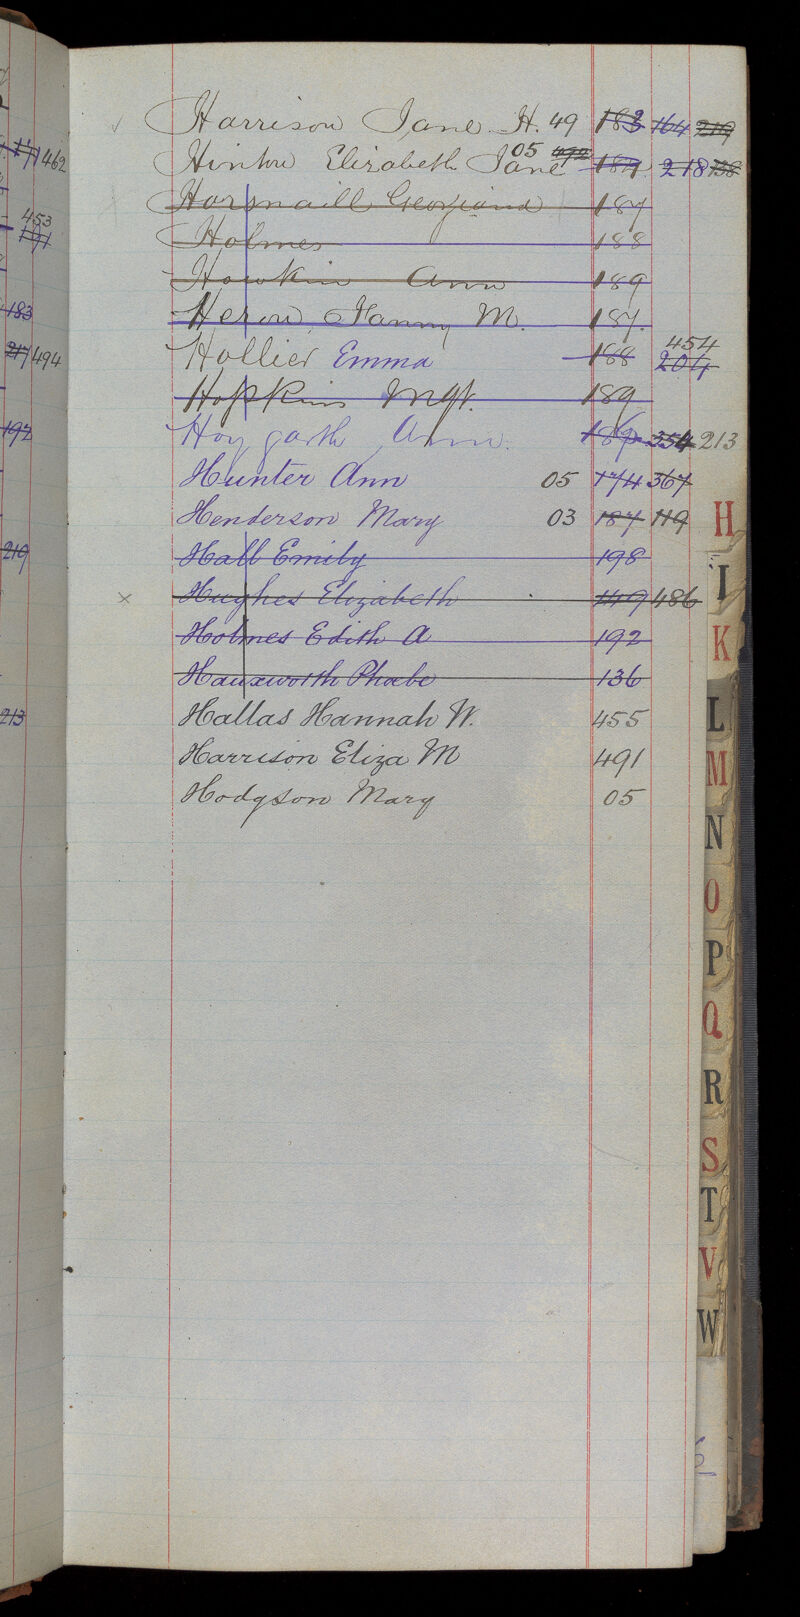 462
453
191
183
217 494
192
219
213
Harrison Jane H. 49 183 164 219
Hinton Elizabeth Jane 05 492 184 218 138
Horsnaill Georgiana 187
Holmes 188
Howkin Ann 189
Heron Fanny M. 187.
Hollier Emma 188 204 454
Hopkins Mgt. 189
Hoygarth Ann 189 354 213
Hunter Ann 05 174 367
Henderson Mary 03 187 119
Hall Emily 198
× Hughes Elizabeth 149 486
Holmes Edith A 192
Hauxworth Phoebe 136
Hallas Hannah W. 455
Harrison Eliza M 491
Hodgson Mary 05
H
I
K
L
M
N
O
P
Q
R
S
T
V
W